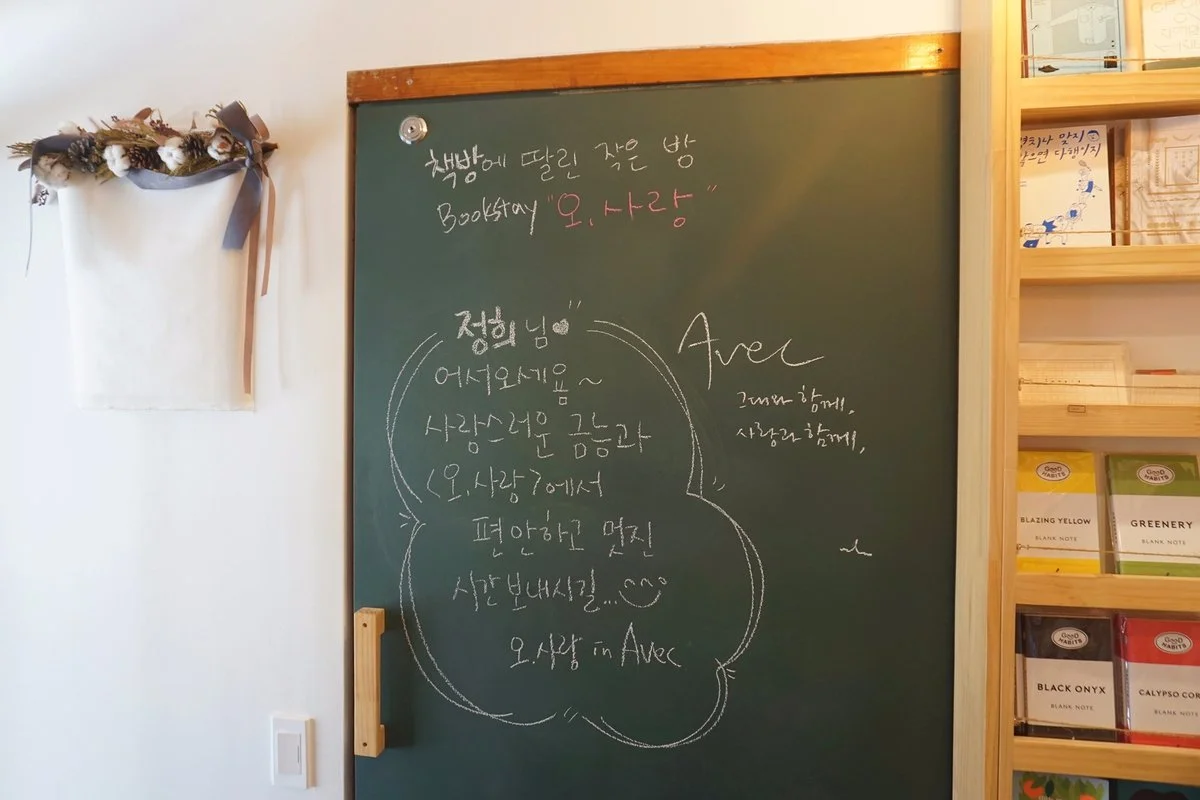 책방에 딸린 작은 방
Bookstay "오, 사랑"
정희님♥"
어서오세욤~
사랑스러운 금능과
<오,사랑>에서
편안하고 멋진
시간 보내시길...
오,사랑 in Avec
Avec
그대와 함께,
사랑과 함께,
맞지
않으면 다행이지
GOOD HABITS
BLAZING YELLOW
BLANK NOTE
GOOD HABITS
GREENERY
BLANK NOTE
GOOD HABITS
BLACK ONYX
BLANK NOTE
GOOD HABITS
CALYPSO COR
BLANK NOTE